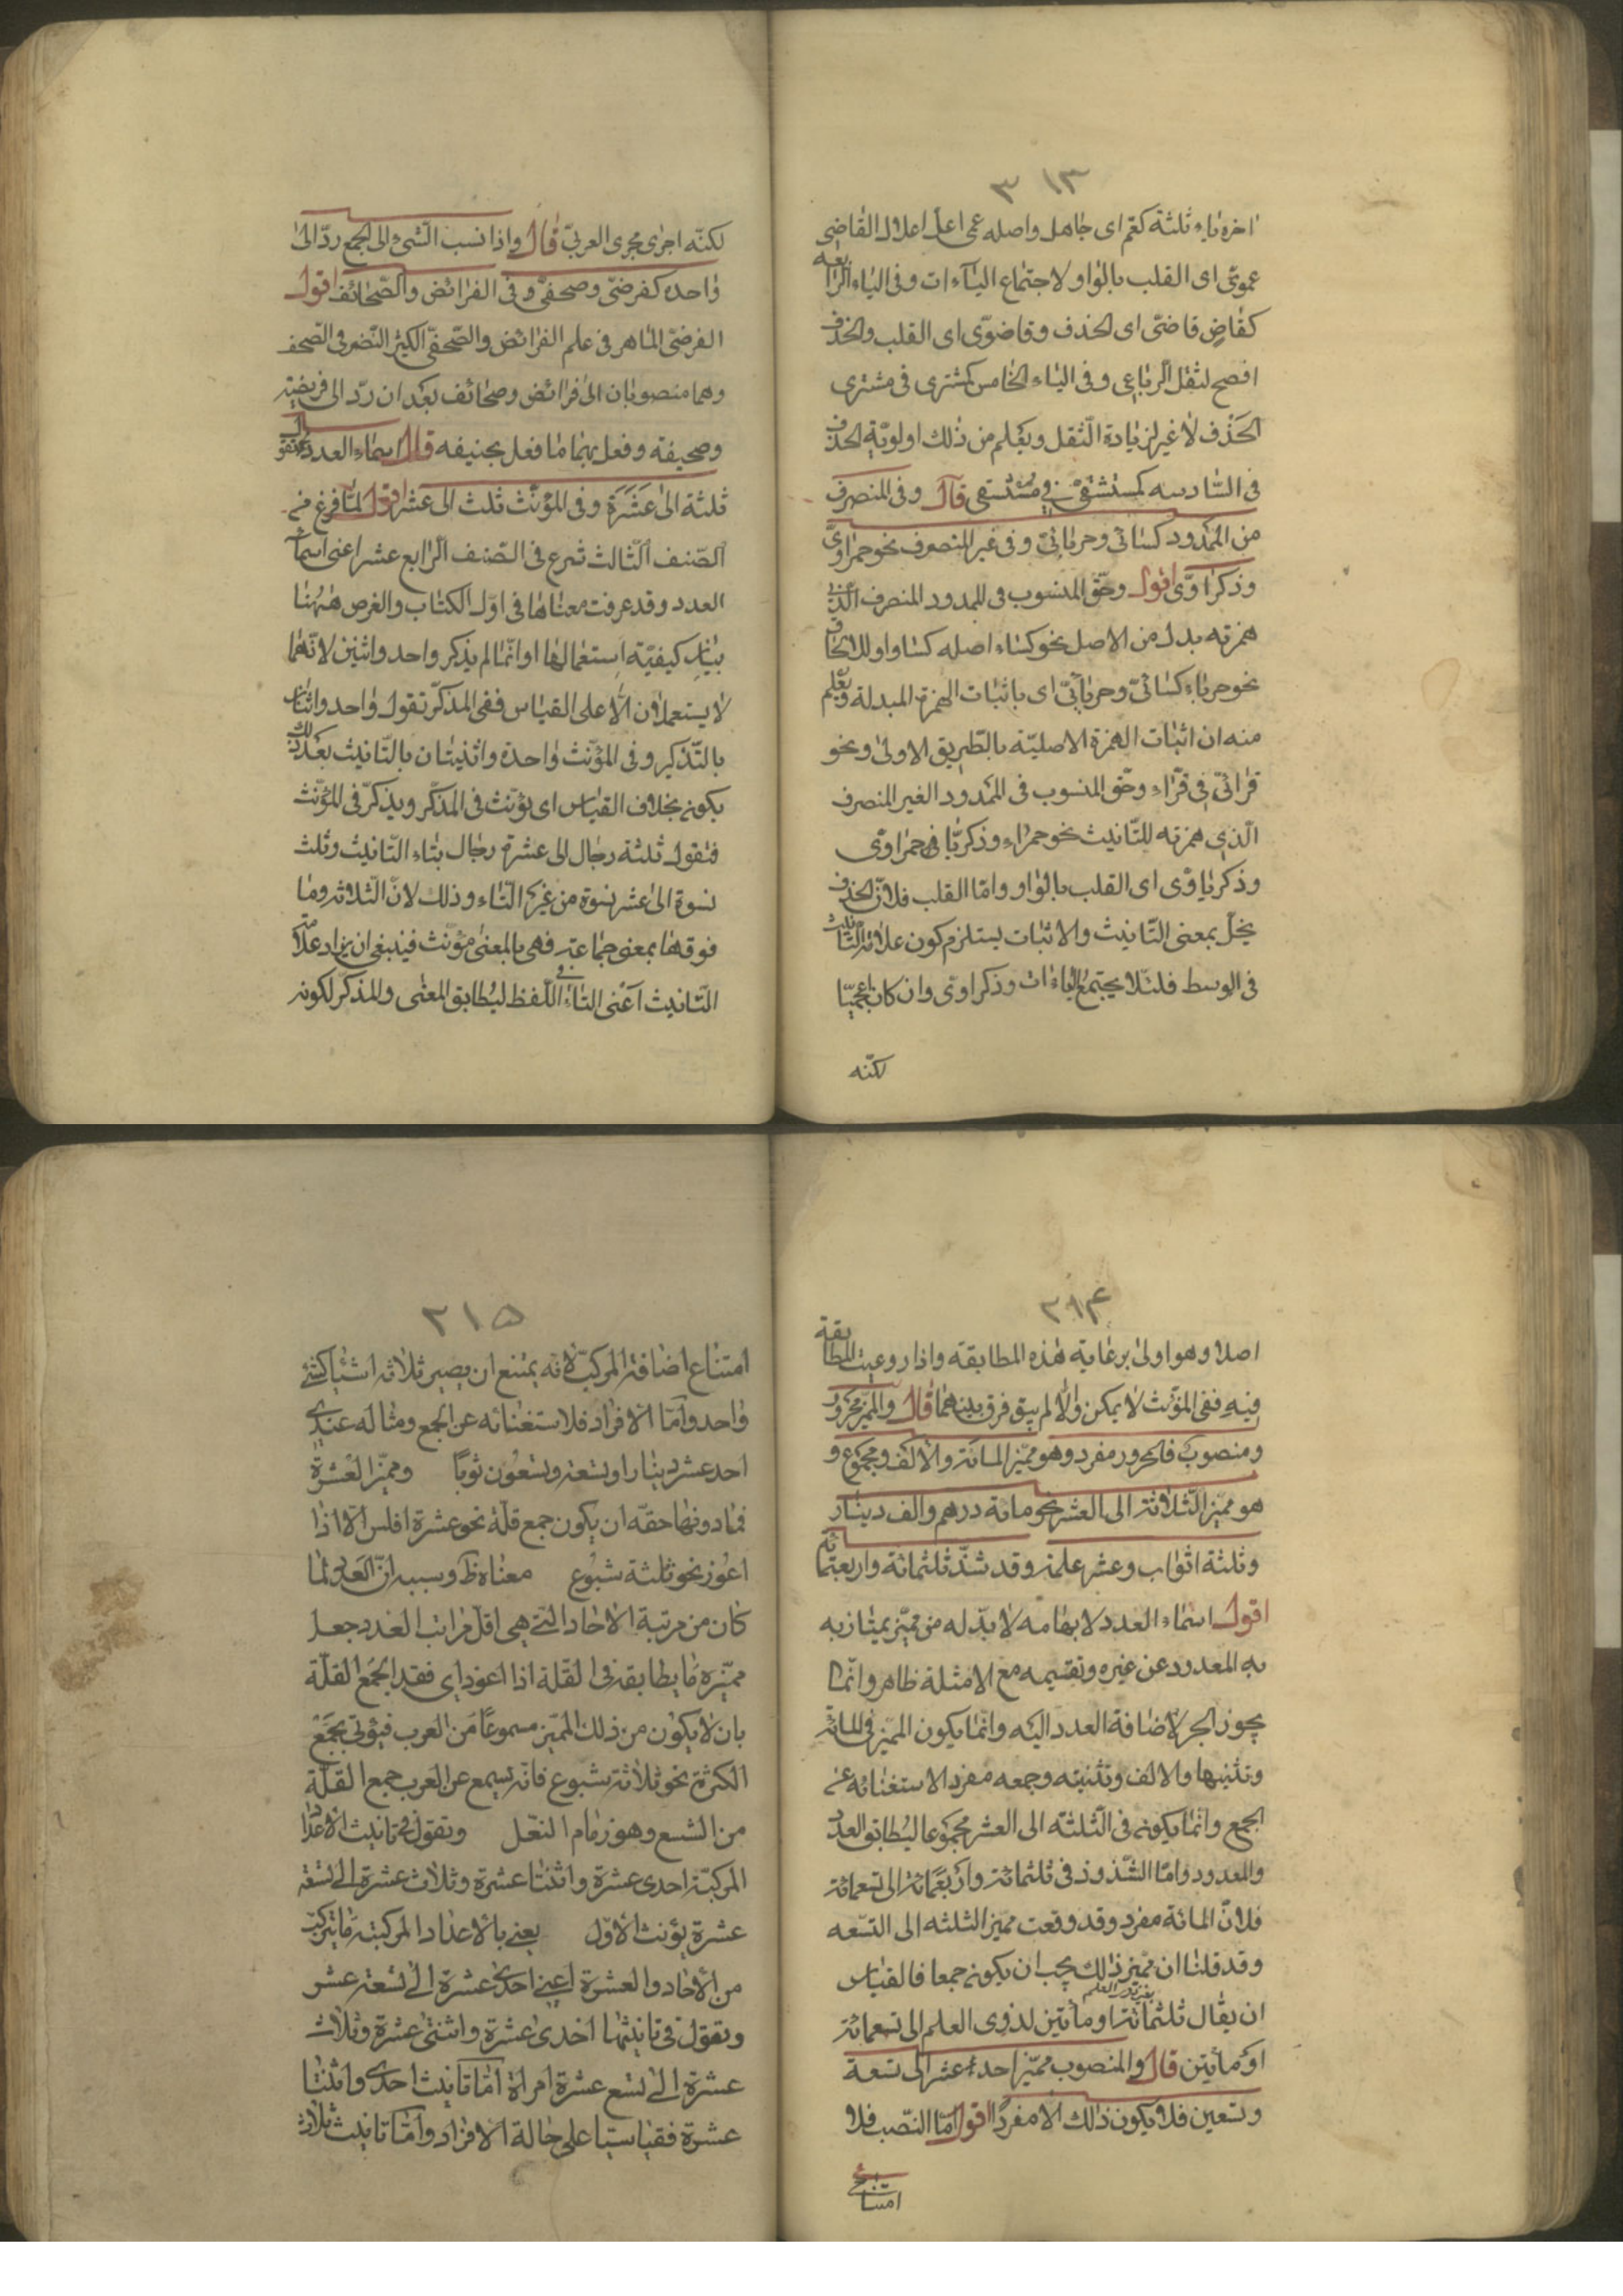 ٣١٣
اخره ياء ثلثة كعم اى جاهل واصله عمى اعل اعلال القاضى
عموىّ اى القلب بالواو لاجتماع الياءات وفى الياء الرابعه
كقاضٍ قاضىّ اى الحذف وقاضوىّ اى القلب والحذف
افصح لثقل الرباعى وفى الياء الخامس كمشترى فى مشترى
الحذف لا غير لزيادة الثقل ويعلم من ذلك اولويّة الحذف
فى السادسه كمستسقىّ فى مستسقى قال وفى المنصرف
من الممدود كسائى وحربائىّ وفى غير المنصرف نحو حمراوىّ
وذكراوىّ اقول وحقّ المنسوب فى الممدود المنصرف الذى
همزته بدل من الاصل نحو كساء اصله كساو او للالحاق
نحو حرباء كسائىّ وحربائىّ اى باثبات الهمزة المبدلة ويعلم
منه ان اثبات الهمزة الاصليّة بالطّريق الاولى ونحو
قرائىّ فى قرّاء وحقّ المنسوب فى الممدود الغير المنصرف
الّذى همزته للتّانيث نحو حمراء وذكريّا فى حمراوى
وذكرياوى اى القلب بالواو وامّا القلب فلانّ الحذف
يخلّ بمعنى التّانيث والاثبات يستلزم كون علامة التّانيث
فى الوسط فلئلّا يجتمع الياءات وذكراوى وان كان عجميّا
لكنّه
لكنّه اجرى مجرى العربىّ قال واذا نسب الشىء الى الجمع ردّ الى
واحده كفرضىّ وصحفىّ وفى الفرائض والصّحائف اقول
الفرضىّ الماهر فى علم الفرائض والصّحفىّ الكثير النّظر فى الصّحف
وهما منصوبان الى فرائض وصحائف بعد ان ردّ الى فريضة
وصحيفه وفعل بهما ما فعل بحنيفه قال اسماء العدد تقول
ثلثة الى عَشَرَة وفى المؤنّث ثلث الى عشر اقول لمّا فرغ من
الصّنف الثّالث شرع فى الصّنف الرّابع عشر اعنى اسماء
العدد وقد عرفت معناها فى اوّل الكتاب والغرض ههنا
بيان كيفيّة استعمالها وانّما لم يذكر واحد واثنين لانّهما
لا يستعملان الّا على القياس ففى المذكّر تقول واحد واثنان
بالتّذكير وفى المؤنّث واحدة واثنتان بالتّانيث بعد ذلك
يكونه بخلاف القياس اى يؤنّث فى المذكّر ويذكّر فى المؤنّث
فتقول ثلثة رجال الى عشرة رجال بتاء التّانيث وثلث
نسوة الى عشر نسوة من غير التّاء وذلك لانّ الثّلاثه وما
فوقها بمعنى جماعة فهى بالمعنى مؤنّث فينبغى ان يزاد علامة
التّانيث اعنى التاء فى اللّفظ ليطابق المعنى والمذكّر لكونه
٣١۴
اصلا وهو اولى برعاية هذه المطابقه واذا روعيت المطابقة
فيه ففى المؤنّث لا يمكن والّا لم يبق فرق بينهما قال والمميّز مجرور
ومنصوب فالمجرور مفرد وهو مميّز المائة والالف ومجموع و
هو مميّز الثّلاثة الى العشر نحو مائة درهم والف دينار
وثلثة اثواب وعشر غلمة وقد شذّ ثلثمائة واربعمائة
اقول اسماء العدد لابهامه لا بدّ له من مميّز يمتاز به
به المعدود عن غيره وتقسيمه مع الامثلة ظاهر وانّما
يجوز الجر لاضافة العدد اليه وانّما يكون المميّز فى المائة
وتثنيتها والالف وتثنيته وجمعه مفرد الاستغنائه عن
الجمع وانّما يكونه فى الثلثه الى العشر مجموعا ليطابق العدد
والمعدود وامّا الشّذوذ فى ثلثمائة واربعمائة الى تسعمائة
فلانّ المائة مفرد وقد وقعت مميز الثلثه الى التسعه
وقد قلنا ان مميّز ذلك يجب ان يكونه جمعا فالقياس
ان يقال ثلثمائة او مأتين لذوى العلم الى تسعمائة
او مأتين قال والمنصوب مميّز احد عشر الى تسعة
وتسعين فلا يكون ذلك الا مفردًا اقول امّا النّصب فلا
٣١۵
امتناع اضافة المركبّ لانّه يمتنع ان يصير ثلاثة اشياء كشئ
واحد وامّا الافراد فلاستغنائه عن الجمع ومثاله عندى
احد عشر دينارا وتسعة وتسعون ثوبًا ومميّز العشرة
فما دونها حقّه ان يكون جمع قلّة نحو عشرة افلس الّا اذا
اعوز نحو ثلثة شسوع معناه ظ وسببه انّ العدد لمّا
كان من مرتبة الاحاد الّتى هى اقلّ مراتب العدد جعل
مميّزه ما يطابقه فى القلة اذا اعوذ اى فقد الجمع القلّة
بان لا يكون من ذلك المميّز مسموعًا من العرب فيؤتى بجمع
الكثرة نحو ثلاثة شسوع فانّه يسمع عن العرب جمع القلّة
من الشسع وهو زمام النعل وتقول فى تانيث الاعداد
المركبّة احدى عشرة واثنتا عشرة وثلاث عشرة الى تسعة
عشرة يؤنث الاوّل يعنى بالاعداد المركبّة ما يتركّب
من الاحاد والعشرة اعنى احد عشرة الى تسعة عشر
وتقول فى تانيثها احدى عشرة واثنتى عشرة وثلاث
عشرة الى تسع عشرة امراة امّا تانيث احدى واثنتا
عشرة فقياسيّا على حالة الافراد وامّا تانيث ثلاث